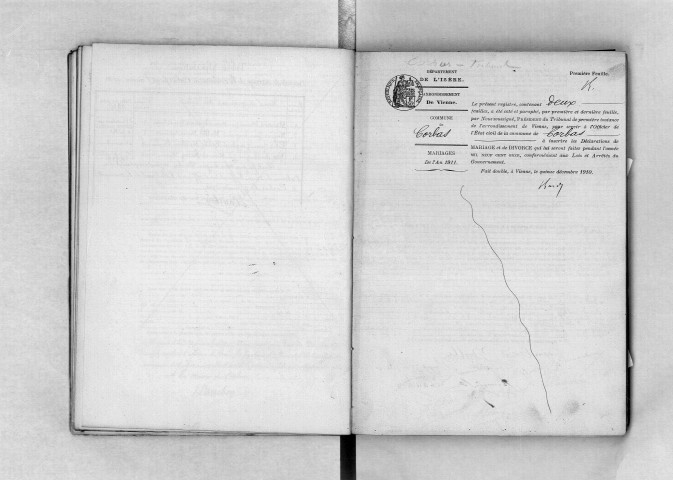 DÉPARTEMENT
DE L'ISÈRE.
ARRONDISSEMENT
De Vienne.
COMMUNE
de
Corbas
MARIAGES
De l'An 1911.
Première Feuille.
Le présent registre, contenant Deux
feuilles, a été coté et paraphé, par première et dernière feuille,
par Nous soussigné, Président du Tribunal de première instance
de l'arrondissement de Vienne, pour servir à l'Officier de
l'État civil de la commune de Corbas
à inscrire les Déclarations de
MARIAGE et de DIVORCE qui lui seront faites pendant l'année
mil neuf cent onze, conformément aux Lois et Arrêtés du
Gouvernement.
Fait double, à Vienne, le quinze décembre 1910.